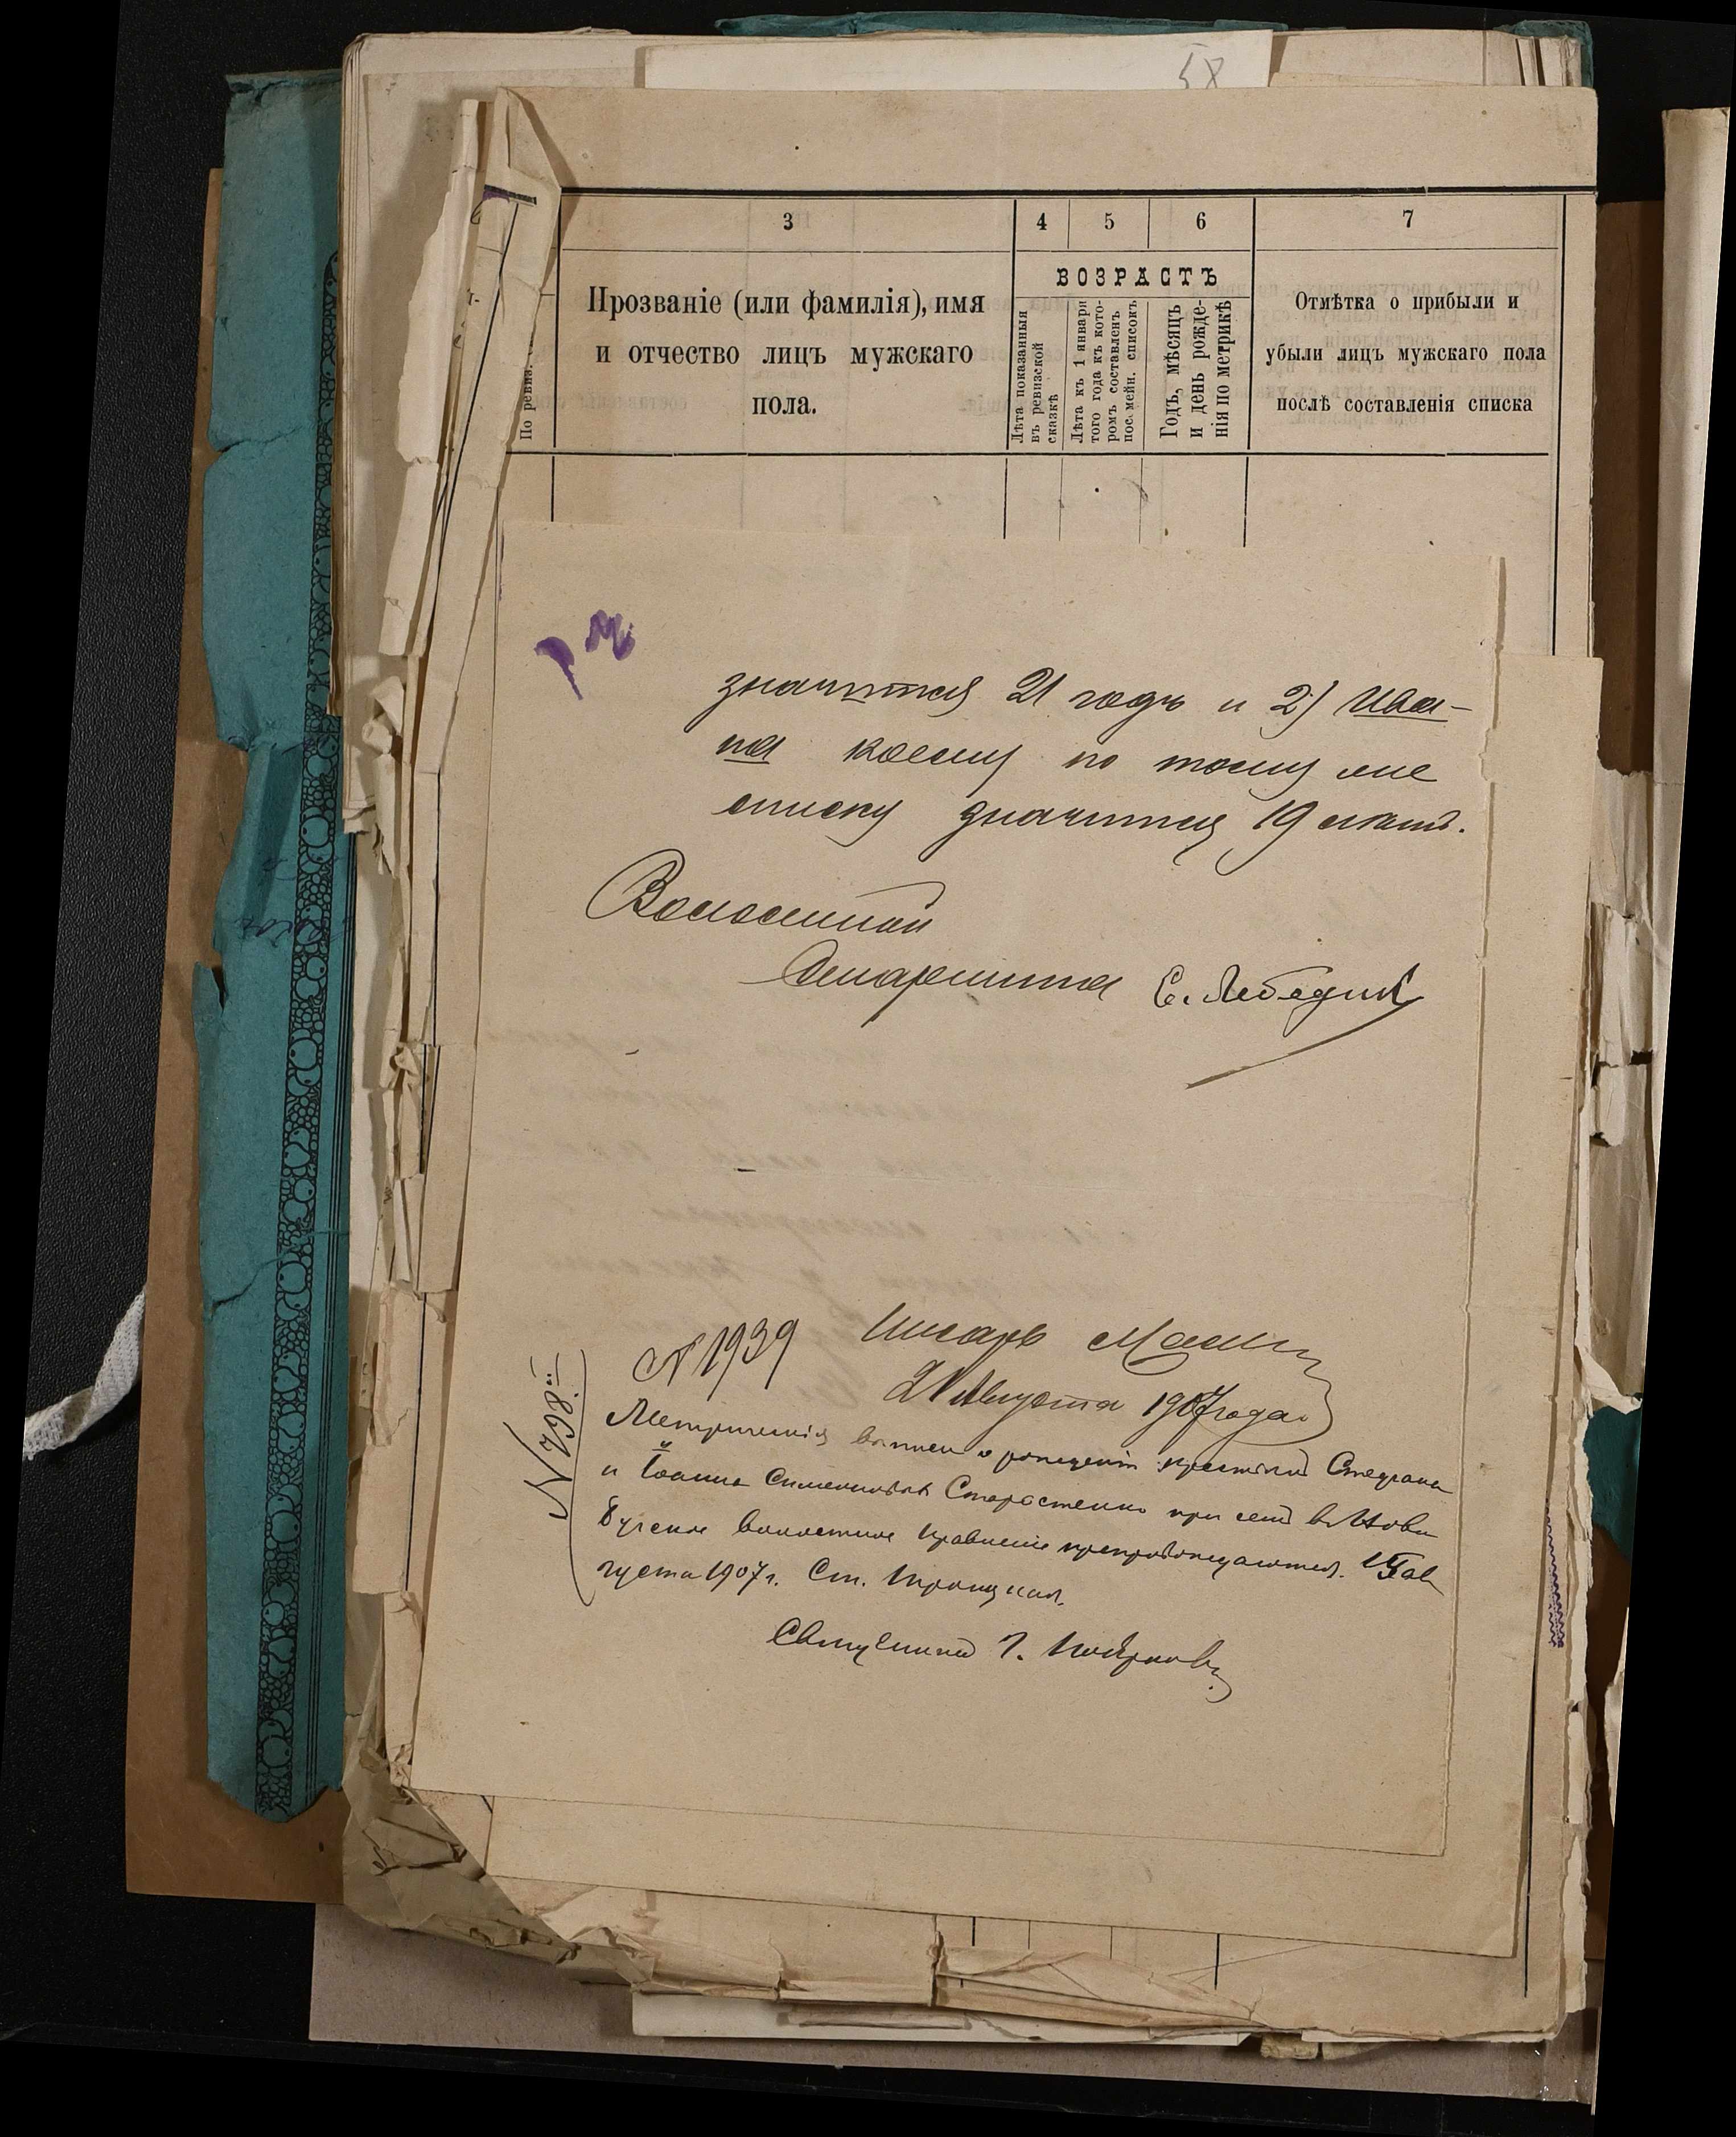 58
3
4
5
6
7
Прозваніе (или фамилія), имя
и отчество лицъ мужскаго
пола.
ВОЗРАСТЪ
Лѣта показанныя
въ ревизской
сказкѣ
Лѣта къ 1 января
того года къ кото-
ромъ составленъ
пос. мейн. списокъ
Годъ, мѣсяцъ
и день рожде-
нія по метрикѣ
Отмѣтка о прибыли и
убыли лицъ мужскаго пола
послѣ составленія списка
По ревиз.
значится 21 годъ и 2) Ива-
на коему по тому же
списку значится 19 лѣтъ.
Волостной
Старшина Е. Лебедик
Писарь
№ 1939
Августа 1907 года
№ 798.
Метрическія выписи о рожденіи крестьянъ Стефана
и Іоанна Симеоновыхъ Старостенко при семъ въ Ново
Бугское волостное Правленіе препровождаются. Ав
густа 1907 г. Ст. Троицкая.
Священникъ